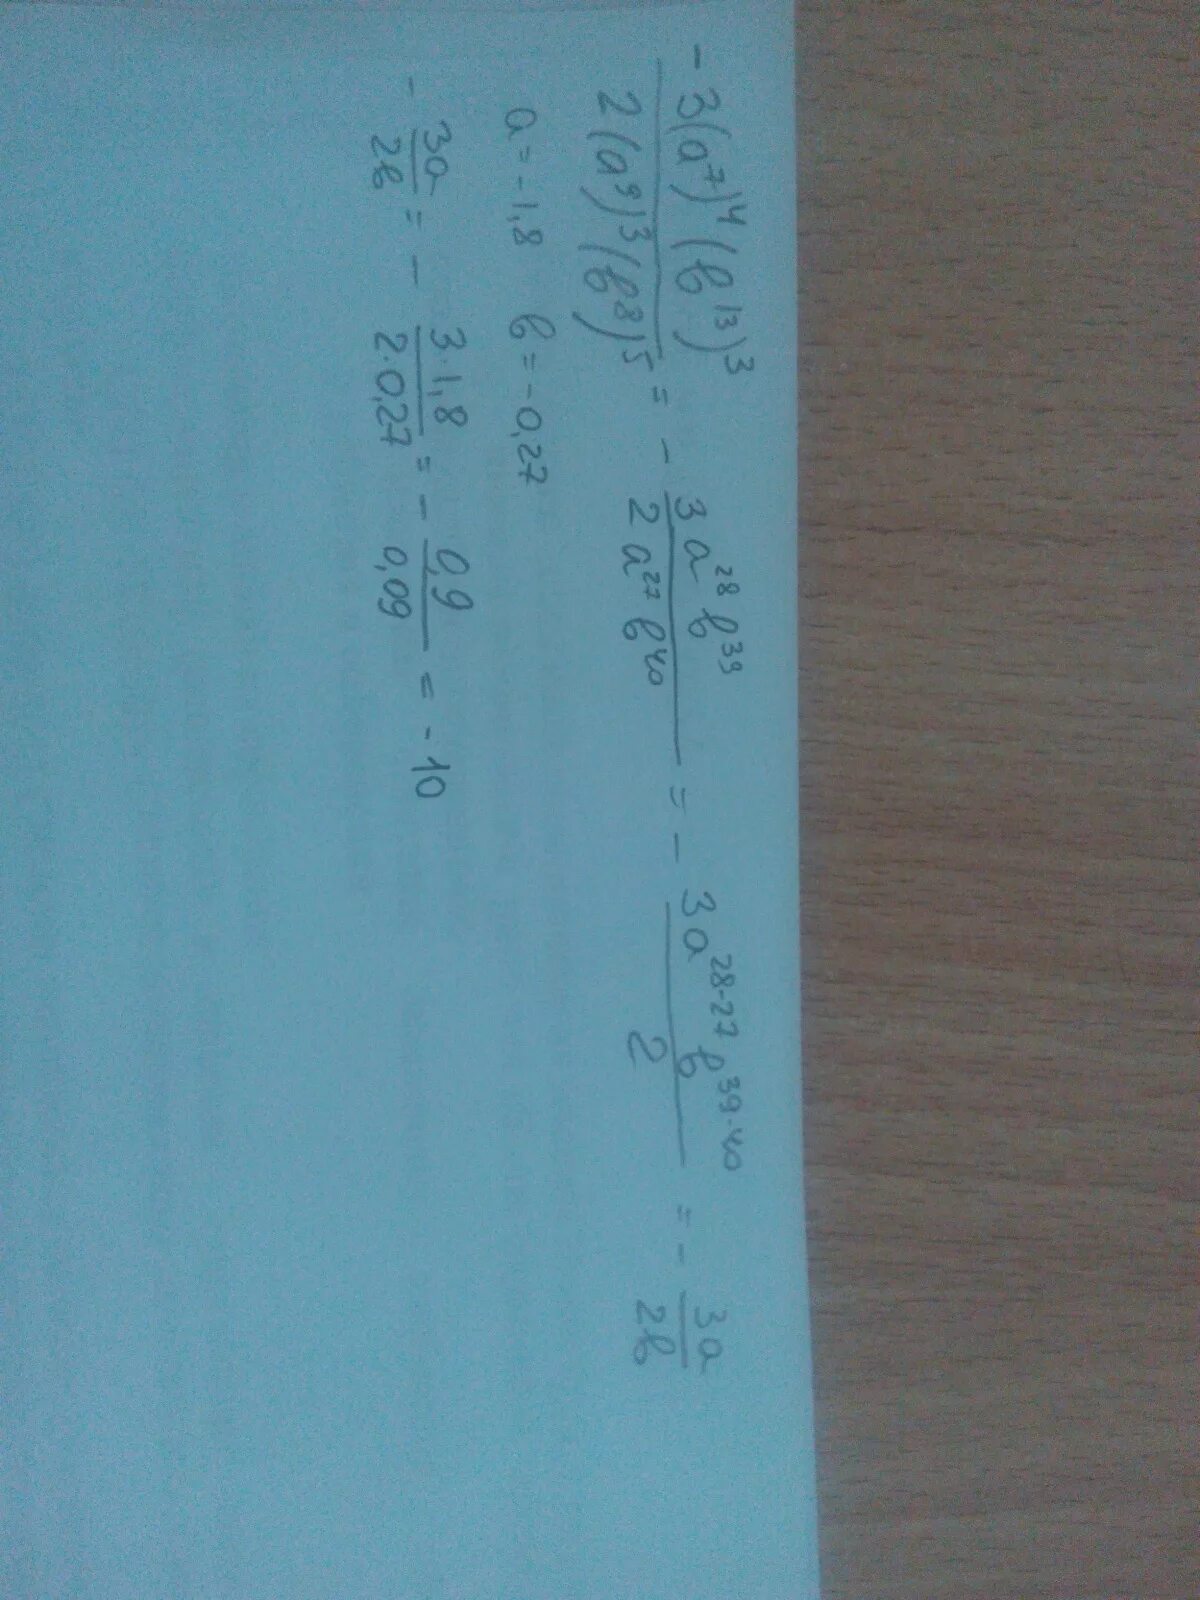 -3(a⁷)⁴(b¹³)³ / 2(a⁹)³(b⁸)⁵ = - 3a²⁸b³⁹ / 2a²⁷b⁴⁰ = - 3a²⁸⁻²⁷b³⁹⁻⁴⁰ / 2 = - 3a / 2b
a=-1,8 b=-0,27
- 3a / 2b = - 3·1,8 / 2·0,27 = - 0,9 / 0,09 = -10